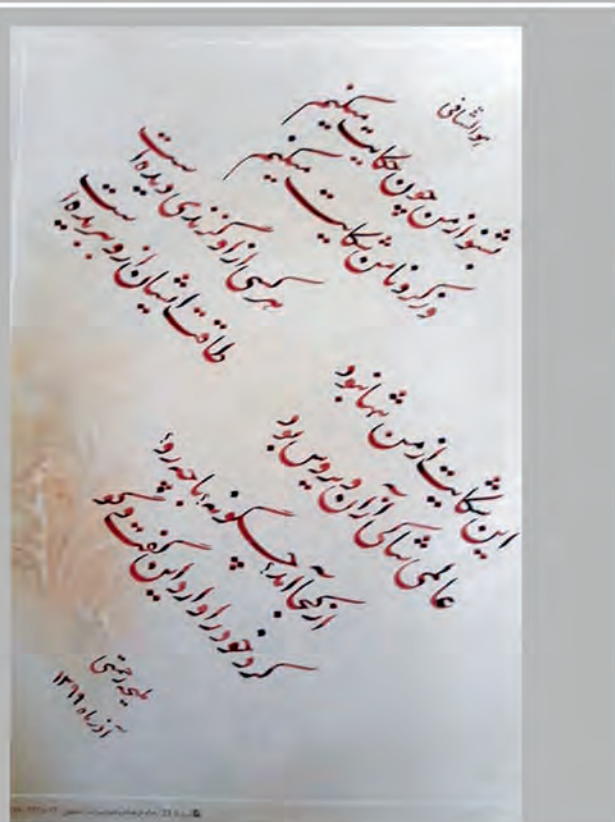 هوالشافی
بشنو از من چون حکایت میکنم
وز کرونا من شکایت میکنم
هر کسی از او گزندی دیده است
طاقت ایشان از او ببریده است
این شکایت از من تنها نبود
عالمی شاکی از آن ویروس بود
از کجا آمد؟ چگونه؟ با چه رو؟
کرد خود را وارد این گفت و گو
ملیحه رحمتی
آذر ماه ۱۳۹۹